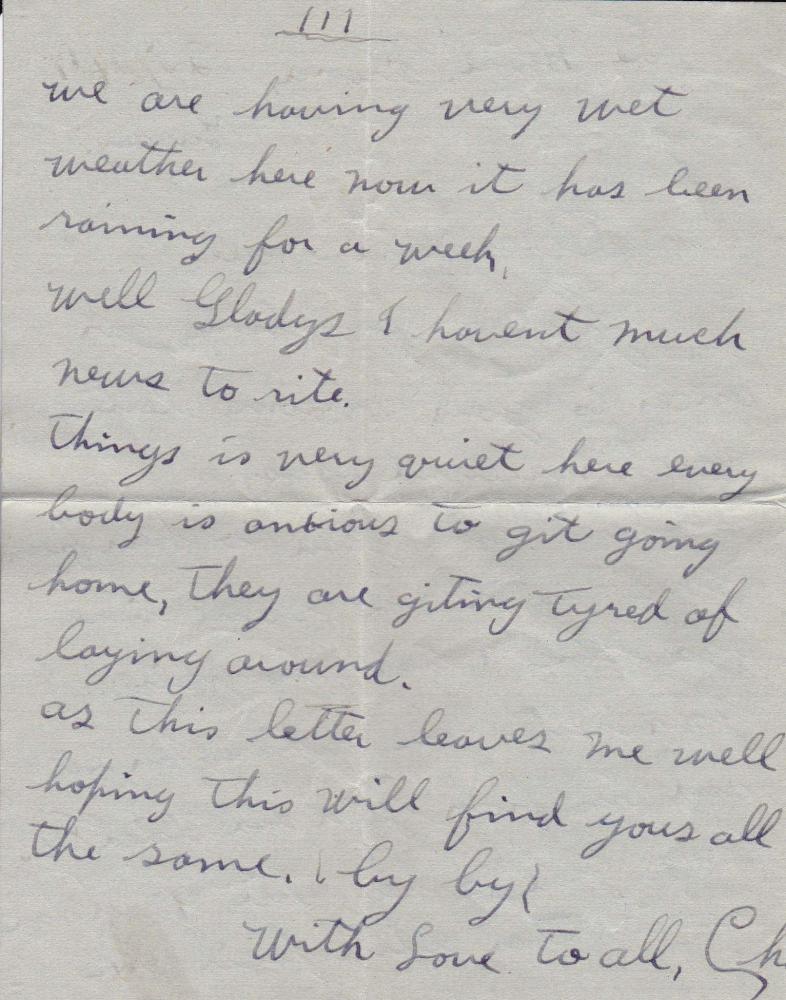 111
we are having very wet
weather here now it has been
raining for a week,
well Gladys I havent much
news to rite.
things is very quiet here every
body is anxious to git going
home, they are giting tyred of
laying around.
as this letter leaves me well
hoping this will find yous all
the same. (by by)
With Love to all, Ch